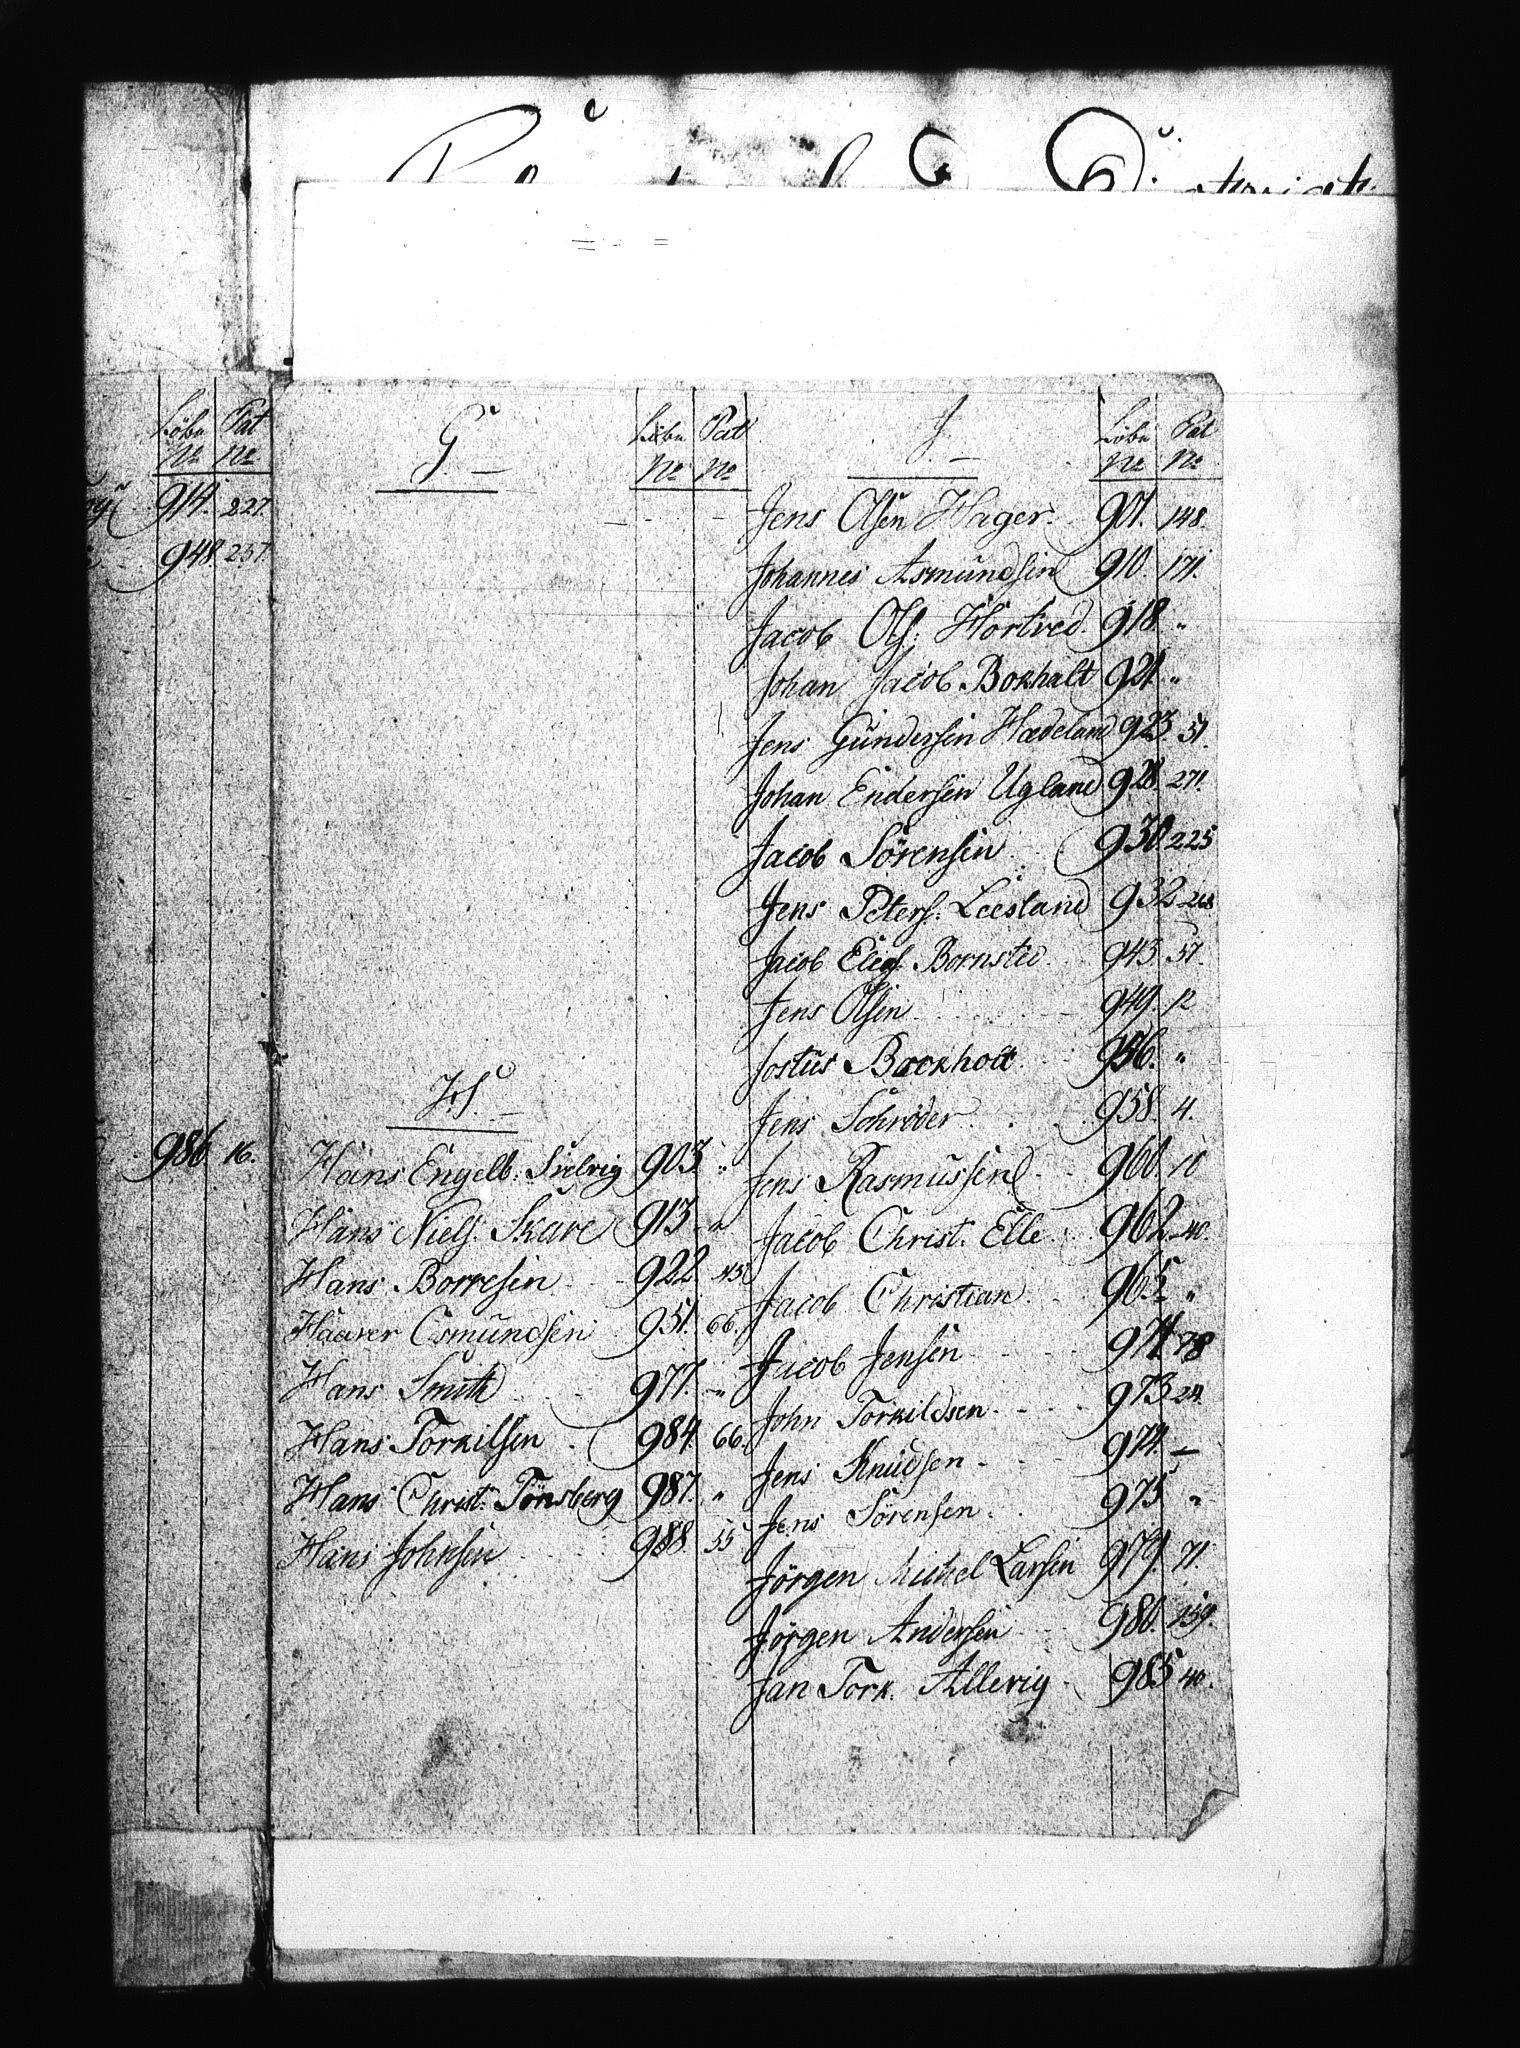 Løbe Pat
No No
914. 227.
948. 237.
986. 16.
G
Løbe Pat
No No
H
Hans Engelb: Sielvig 903 "
Hans Niels. Skare 913 "
Hans Borresen 922
Haaver Osmundsen 951. 66.
Hans Smith 977. "
Hans Torkilsen 984. 66.
Hans Christ: Tönsberg 987. "
Hans Johnsen 988. 55
J
Løbe Pat
No No
Jens Olsen Hager 901. 148.
Johannes Asmundsen 910. 171.
Jacob Ols: Hortved 918 "
Johan Jacob Bokhalt 921. "
Jens Gundersen Hædeland 923 51.
Johan Endersen Ugland 928 271.
Jacob Sörensen 930 225
Jens Peters. Leesland 932 268
Jacob Elies. Bornsted 943 57.
Jens Olsen 949. 12
Jostus Bockholt 956. "
Jens Schröder 958. 4.
Jens Rasmussen 960. 10
Jacob Christ. Elle 962 40.
Jacob Christian 965 "
Jacob Jensen 971. 78
John Torkildsen 973 24.
Jens Knudsen 974. –
Jens Sörensen 975 "
Jörgen Michel Larsen 979. 71.
Jörgen Andersen 980. 159.
Jan Tork. Allevig 985 40.